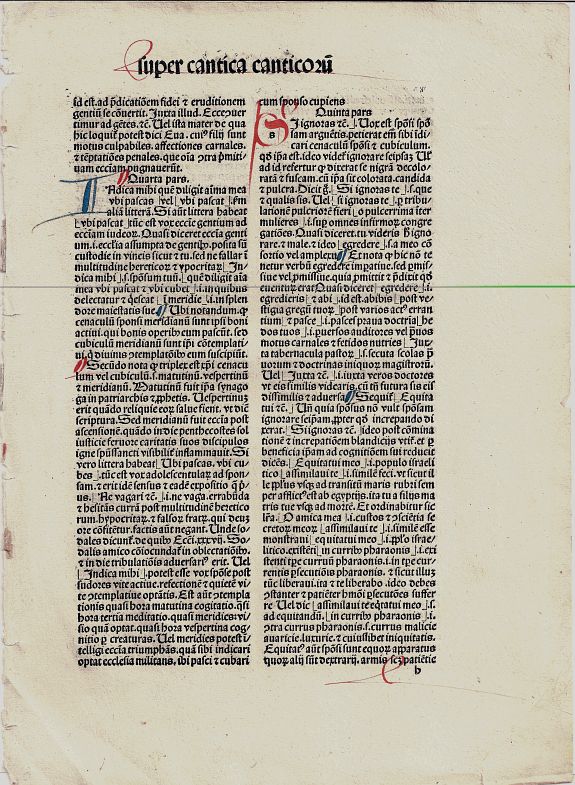 super cantica canticorū
id est. ad p̄dicatiōem fidei ⁊ eruditionem
gentiū se cōvertit. Juxta illud. Ecce ꝓuer
timur ad gētes. ⁊c̄. Uel ista mater de qua
hic loquit̄ potest dici Eua. cui⁹ filij sunt
motus culpabiles. affectiones carnales.
⁊ tēptatiōes penales. que oīa ꝯtra p̄miti/
uam ecc̄iam pugnauerūt.
Quarta pars.
Indica mihi quē diligit aīma mea
vbi pascas vel vbi pascat
alia littera. Si aūt littera habeat
vbi pascat tūc est vox ecc̄ie gentium ad
ecc̄iam iudeoꝝ. Quasi diceret ecc̄ia genti
um. i. ecc̄lia assumpta de gentib⁹. posita sū
custodie in vineis sicut ⁊ tu. sed ne fallar ī
multitudine hereticoꝝ ⁊ ypocritaꝝ In/
dica mihi .s. sponsum tuū quē diligit aīa
mea vbi pascat ⁊ vbi cubet .i. in quibus
delectatur ⁊ q̄escat in meridie .i. in splen
dore maiestatis sue Ubi notandum. q̄
cenaculū sponsi meridianū sunt ipsi boni
actiui. qui bonis operib⁹ eum pascūt. sed
cubiculū meridianū sunt ip̄i cōtemplati/
ui. q̄ diuinis ꝯtemplatōib⁹ eum suscipiūt.
Secūdo nota q̄ triplex est xp̄i cenacu
lum vel cubiculū. s. matutinū. vespertinū
⁊ meridianū. Matutinū fuit ip̄a synago
ga in patriarchis ⁊ ꝓphetis. Uespertinuꝫ
erit quādo reliquie eoꝝ salue fient. vt dicit
scriptura. Sed meridianū fuit ecc̄ia post
ascensionē. quādo in die penthecostes sol
iusticie feruore caritatis suos discipulos
igne spūssancti visibilit̄ inflammauit. Si
vero littera habeat Ubi pascas. vbi cu/
bes .tūc est vox adolescentulaꝝ ad spon/
sam. ⁊ erit idē sensus ⁊ eadē expositio q̄ p̄
us. Ne vagari ⁊c̄. .i. ne vaga. errabūda
⁊ hesitās currā post multitudinē heretico
rum. hypocritaꝝ. ⁊ falsoꝝ fratꝝ. qui deuꝫ
ore cōfitētur. factis aūt negant. Unde so/
dales dicunt̄. de quib⁹ Ecc̄i. xxxvij. So/
dalis amico cōiocundat̄ in oblectatōib⁹.
⁊ in die tribulatiōis aduersari⁹ erit. Uel
Indica mihi potest esse vox spōse post
sudores vite actiue. refectionē ⁊ quietē vi
te ꝯtemplatiue optātis. Est aūt ꝯtempla
tionis quasi hora matutina cogitatio. q̄si
hora tertia meditatio. quasi meridies: vi/
sio quā optat. quasi hora vespertina cog
nitio ꝑ creaturas. Uel meridies potest ī
telligi ecc̄ia triumphās. quā sibi indicari
optat ecclesia militans. ibi pasci ⁊ cubari
cum sponso cupiens
Quinta pars
SI ignoras ⁊c̄. Uox est spōsi spō
sam arguētis. petierat em̄ sibi idi/
cari cenaculū spōsi ⁊ cubiculum.
qd̄ ip̄a est. ideo videt̄ ignorare seipsaꝫ Ul̄
ad id refertur q̄ dixerat se nigrā decolo/
ratā ⁊ fuscam. cū ip̄a sit colorata. candida
⁊ pulcra. Dicit g̊. Si ignoras te .s. que
⁊ qualis sis. Uel si ignoras te ꝑ tribu/
lationē pulcriorē fieri o pulcerrima iter
mulieres .i. sup omnes infirmoꝝ congre
gatiōes. Quasi diceret. tu videris ignō
rare. ⁊ male. ⁊ ideo egredere .s. a meo cō
sortio vel amplexu Et nota q̄ hic nō te
netur verbū egredere impatiue. sed ꝑmis/
siue. ⁊ significatiue. quia ꝑmittit ⁊ p̄dixit qd̄
euenturꝫ erat Quasi diceret egredere .i.
egredieris ⁊ abi .id est. abibis post ve/
stigia gregū tuoꝝ post varios act⁹ erran
tium ⁊ pasce .i. pasces praua doctrīa he
dos tuos .i. ꝑuersos auditores vel prauos
motus carnales ⁊ fetidos nutries Jux/
ta tabernacula pastoꝝ .s. secuta scolas p̄
uorum ⁊ doctrinas iniquoꝝ magistroꝝ.
Uel Juxta ⁊c̄. .i. iuxta veros doctores
vt eis similis videaris. cū tn̄ futura sis eis
dissimilis ⁊ aduersa Sequit̄ Equita
tui ⁊c̄. Un̄ quia sponsus nō vult spōsam
ignorare seip̄am. ꝓpter qd̄ increpando di
xerat. Si ignoras ⁊c̄. ideo post cōmina
tionē ⁊ increpatiōem blandicijs vtit̄. et ꝑ
beneficia ip̄am ad cognitiōem sui reducit
dicēs. Equitatui meo .i. populo israeli
tico assimilaui te .i. simile feci. vt sicut il
le ppl̄us vsqꝫ ad transitū maris rubri sem
per afflict⁹ est ab egyptijs. ita tu a filijs ma
tris tue vsqꝫ ad mortē. Et ordinabitur sic
lr̄a. O amica mea .i. custos ⁊ ꝯsciētia se
cretoꝝ meoꝝ assimilaui te .i. similē esse
monstraui equitatui meo .i. ppl̄o israe/
litico. existēti in currib⁹ pharaonis .i. exi
stenti tꝑe curruū pharaonis. i. in tꝑe cur/
rentis ꝑsecutiōis pharaonis. ⁊ sicut illuꝫ
tūc liberaui. ita ⁊ te liberabo. ideo debes
ꝯstanter ⁊ patiēter hmōi ꝑsecutōes suffer
re Uel dic assimilaui te eq̄tatui meo .s.
ad equitandū. in currib⁹ pharaonis .i.
ꝯtra currus pharaonis .s. currus malicie
auaricie. luxurie. ⁊ cuiuslibet iniquitatis.
Equitat⁹ aūt spōsi sunt equoꝝ apparatus
quoꝝ alij sūt dextrarij. armis scꝫ patiētie
b